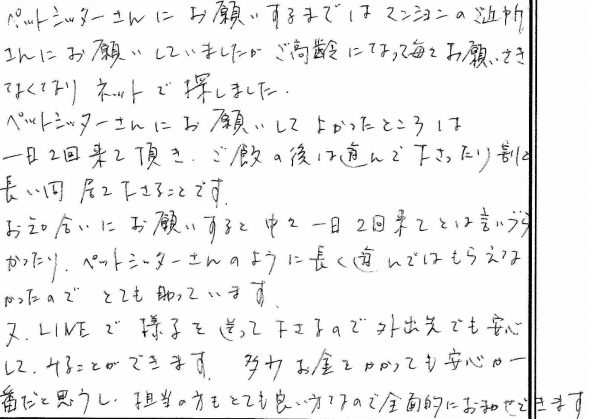 ペットシッターさんにお願いするまではマンションのご近所
さんにお願いしていましたがご高齢になって毎々お願いでき
なくなり ネットで探しました.
ペットシッターさんにお願いしてよかったところは
一日2回来て頂き、ご飯の後は遊んで下さったり割と
長い間居て下さることです.
お知り合いにお願いすると中々一日2回来てとは言いづら
かったり、ペットシッターさんのように長く遊んではもらえな
かったので とても助っています.
又、LINEで様子を送って下さるので外出先でも安心
して、いることができます. 多少お金をかかっても安心が一
番だと思うし、担当の方もとても良い方なので全面的にお任せできます